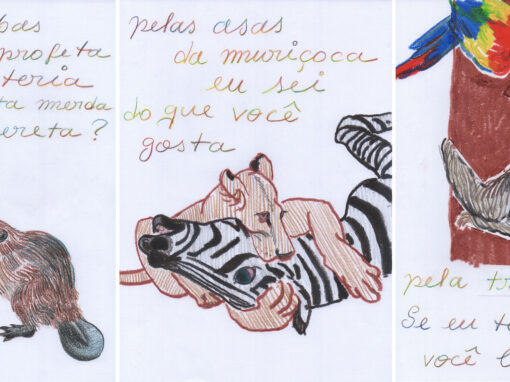 bas
profeta
teria
ta merda
ereta ?
pelas asas
da muriçoca
eu sei
do que você
gosta
pela tr
Se eu t
você